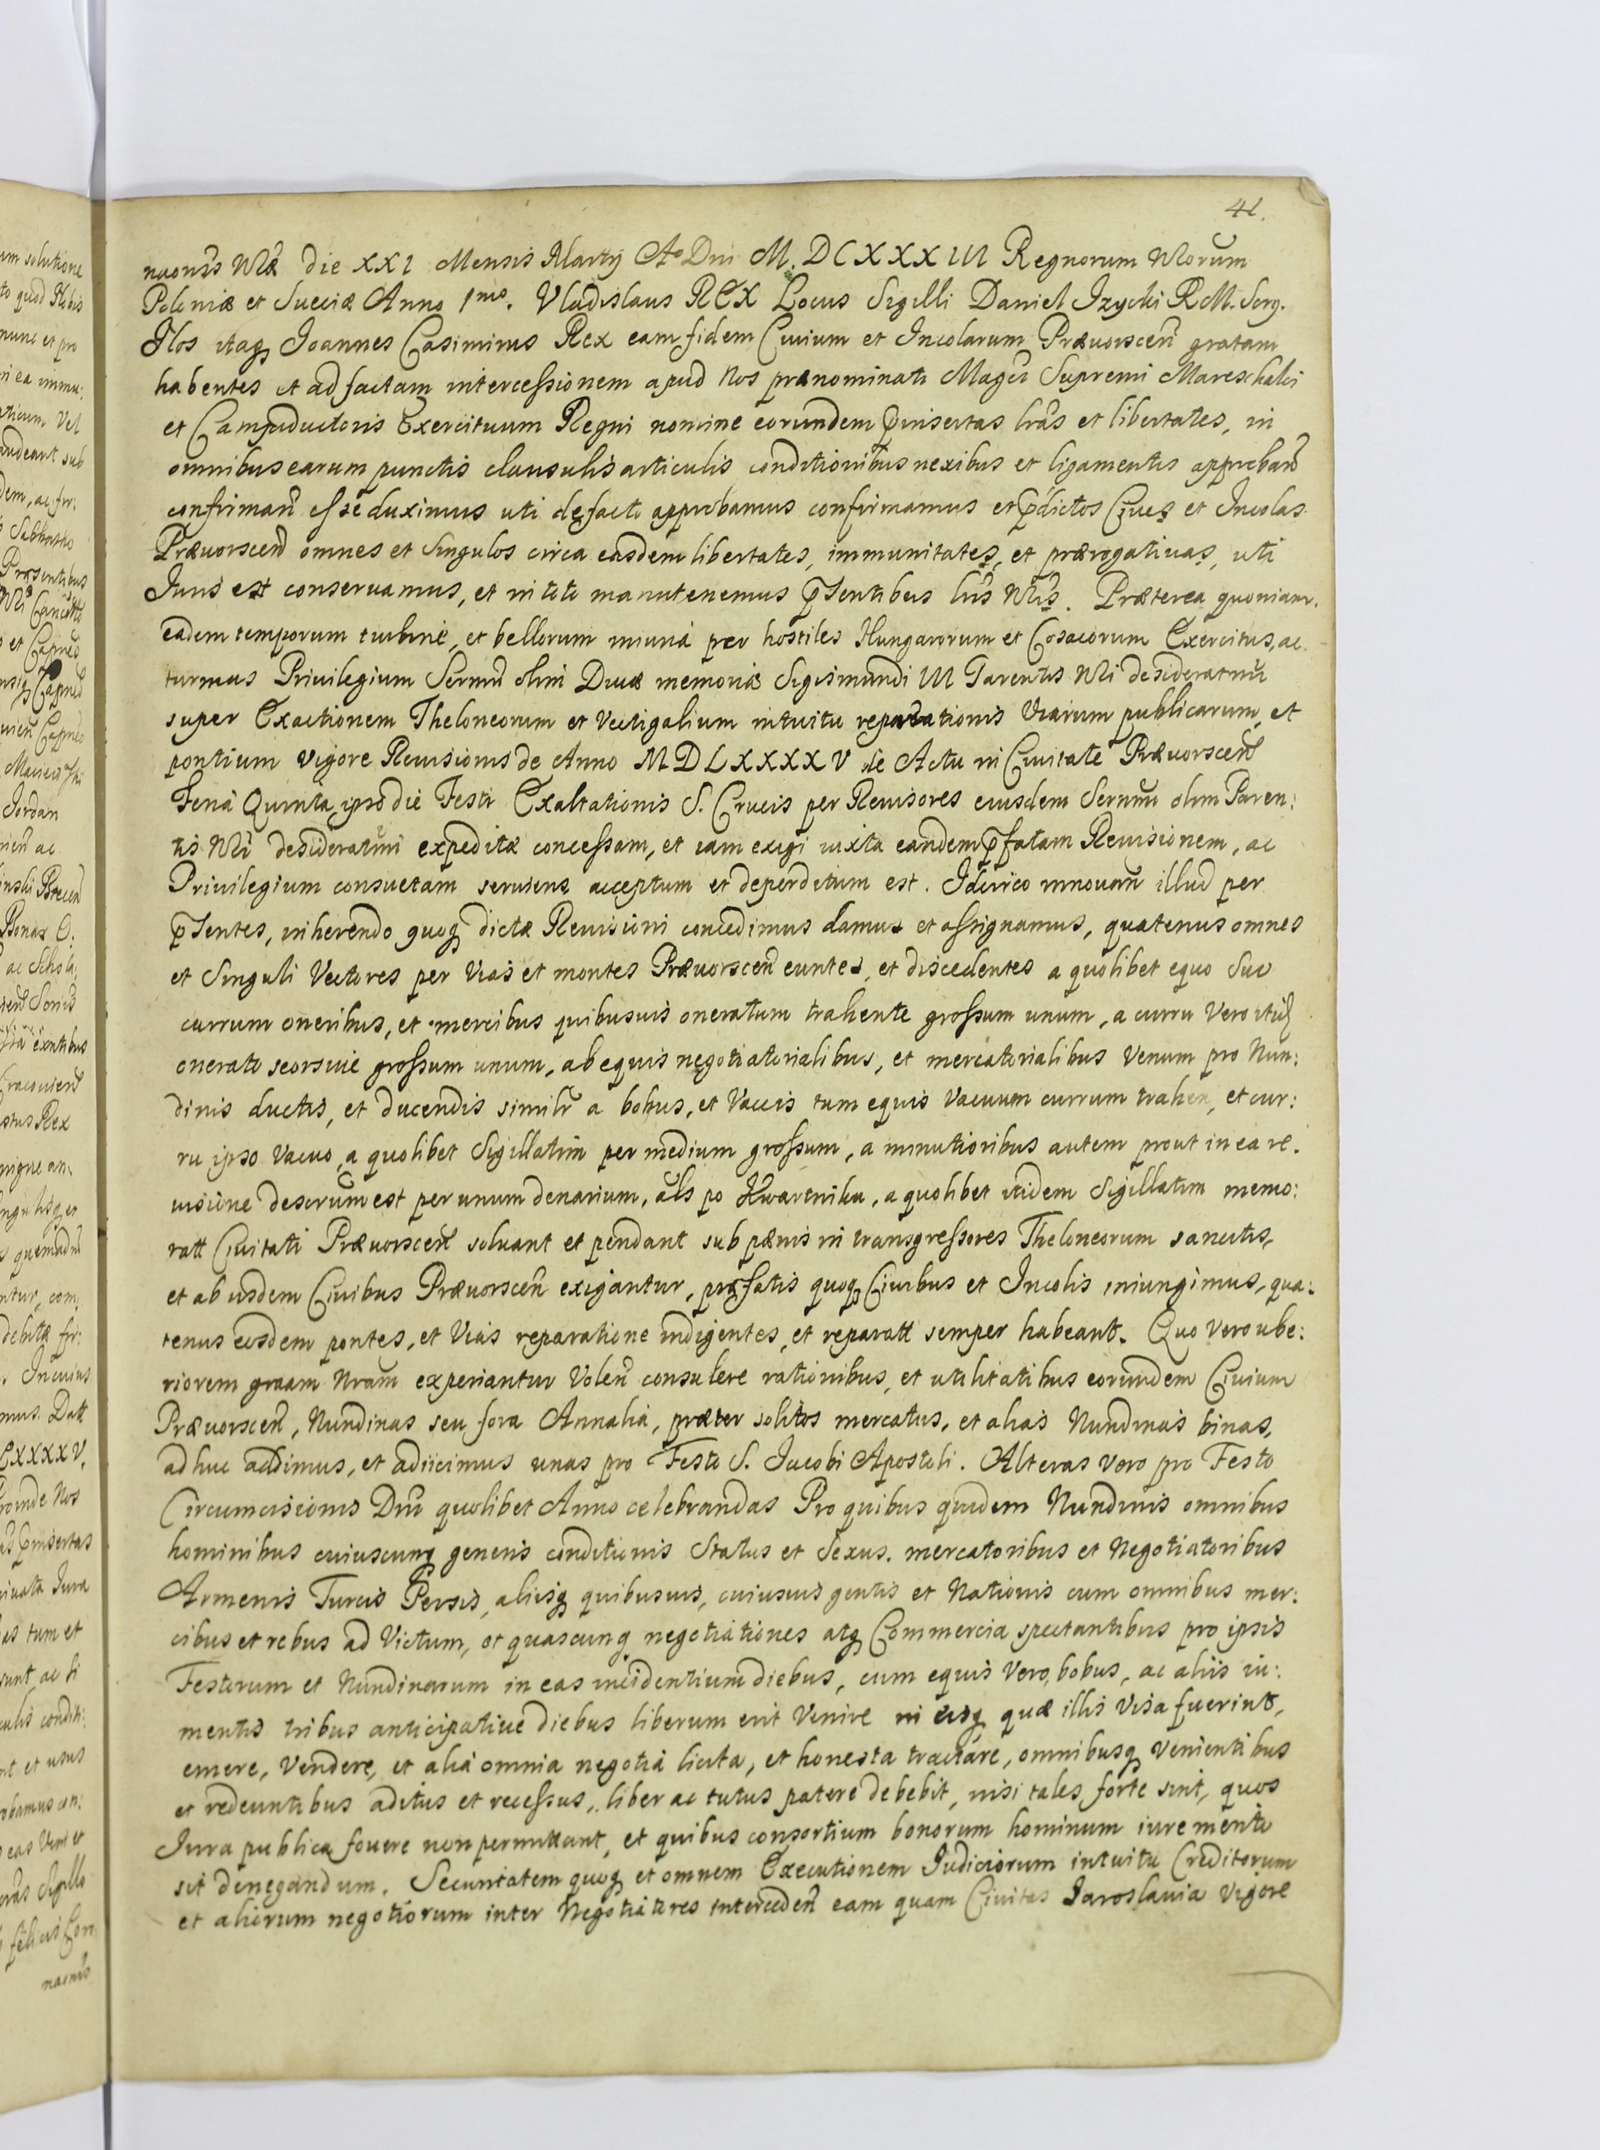 41.
nuonis Nræ die XXI Mensis Martÿ Aº Dni M. DCXXXIII Regnorum Nrorum
Poloniæ et Sueciæ Anno 1mo. Vladislaus REX Locus Sigilli Daniel Izycki R.M. Scrg.
Nos itaq Ioannes Casimirus Rex eam fidem Ciuium et Incolarum Præuorscen gratam
habentes et ad factam intercessionem apud Nos prænominati Magci Supremi Mareschalci
et Campiductoris Exercituum Regni nomine eorundem pinsertas lras et libertates, in
omnibus earum punctis clausulis articulis conditionibus nexibus et ligamentis approban
confirman esse duximus uti de facto approbamus confirmamus et pdictos Ciues et Incolas
Præuorscen omnes et singulos circa easdem libertates, immunitates, et prærogatiuas, uti
Iuris est conseruamus, et in toto manutenemus pSentibus lris Nris. Præterea quoniam
eadem temporum turbine, et bellorum iniuria per hostiles Hungarorum et Cosacorum Exercitus, ac
turmas Priuilegium Sermi olim Diuæ memoriæ Sigismundi III Parentis Nri desideratmi
super Exactionem Theloneorum et Vectigalium intuitu reparationis Viarum publicarum, et
pontium vigore Reuisionis de Anno MDLXXXXV de Actu in Ciuitate Præuorscen
Feria Quinta ipso die Festi Exaltationis S. Crucis per Reuisores eiusdem Sermi olim Paren:
tis Nri desideratmi expeditæ concessam, et iam exigi iuxta eandem pfatam Reuisionem, ac
Priuilegium consuetam seruiens acceptum et deperditum est. Idcirco innouan illud per
pSentes, inherendo quoq dictæ Reuisioni concedimus damus et assignamus, quatenus omnes
et singuli Vectores per Vias et montes Præuorscen euntes, et discedentes a quolibet equo suo
currum oneribus, et mercibus quibusuis oneratum trahente grossum unum, a curru Vero
onerato seorsiue grossum unum, ab equis negotiatorialibus, et mercatorialibus Venum pro Nun:
dinis ductis, et ducendis similr a bobus, et Vaccis tum equis Vacuum currum trahen, et cur:
ru ipso Vacuo, a quolibet Sigillatim per medium grossum, a minutioribus autem prout in ea re.
uisione descrum est per unum denarium, als po Kwartniku, a quolibet itidem Sigillatim memo:
ratt Ciuitati Præuorscen soluant et pendant sub pænis in transgressores Theloneorum sancitis,
et ab iisdem Ciuibus Præuorscen exigantur, præfatis quoq Ciuibus et Incolis iniungimus, qua:
tenus eosdem pontes, et Vias reparatione indigentes, et reparatt semper habeant. Quo Vero ube:
riorem graam Nram experiantur Volen consulere rationibus, et utilitatibus eorundem Ciuium
Præuorscen, Nundinas seu fora Annalia, præter solitos mercatus, et alias Nundinas binas,
ad huc addimus, et adiicimus unas pro Festo S. Iacobi Apostoli. Alteras vero pro Festo
Circumcisionis Dni quolibet Anno celebrandas Pro quibus quidem Nundinis omnibus
hominibus cuiuscunq generis conditionis Status et Sexus. mercatoribus et Negotiatoribus
Armenis Turcis Persis, aliisq quibusuis, cuiusuis gentis et Nationis cum omnibus mer:
cibus et rebus ad Victum, et quascunq negotiationes atq Commercia spectantibus pro ipsis
Festorum et Nundinarum in eas incidentium diebus, cum equis Vero, bobus, ac aliis iu:
mentis tribus anticipatiue diebus liberum erit Venire in quæ illis Visa fuerint,
emere, Vendere, et alia omnia negotia licita, et honesta tractare, omnibusq Venientibus
et redeuntibus aditus et recessus, liber ac tutus patere debebit, nisi tales forte sint, quos
Iura publica fouere non permittant, et quibus consortium bonorum hominum iure merito
sit denegandum. Securitatem quoq et omnem Executionem Iudiciorum intuitu Creditorum
et aliorum negotiorum inter Negotiatores interceden eam quam Ciuitas Iaroslauia Vigore